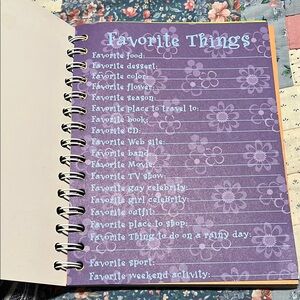 Favorite Things
Favorite food:
Favorite dessert:
Favorite color:
Favorite flower:
Favorite season:
Favorite place to travel to:
Favorite book:
Favorite CD:
Favorite Web site:
Favorite band:
Favorite Movie:
Favorite TV show:
Favorite guy celebrity:
Favorite girl celebrity:
Favorite outfit:
Favorite place to shop:
Favorite Thing to do on a rainy day:
Favorite sport:
Favorite weekend activity: